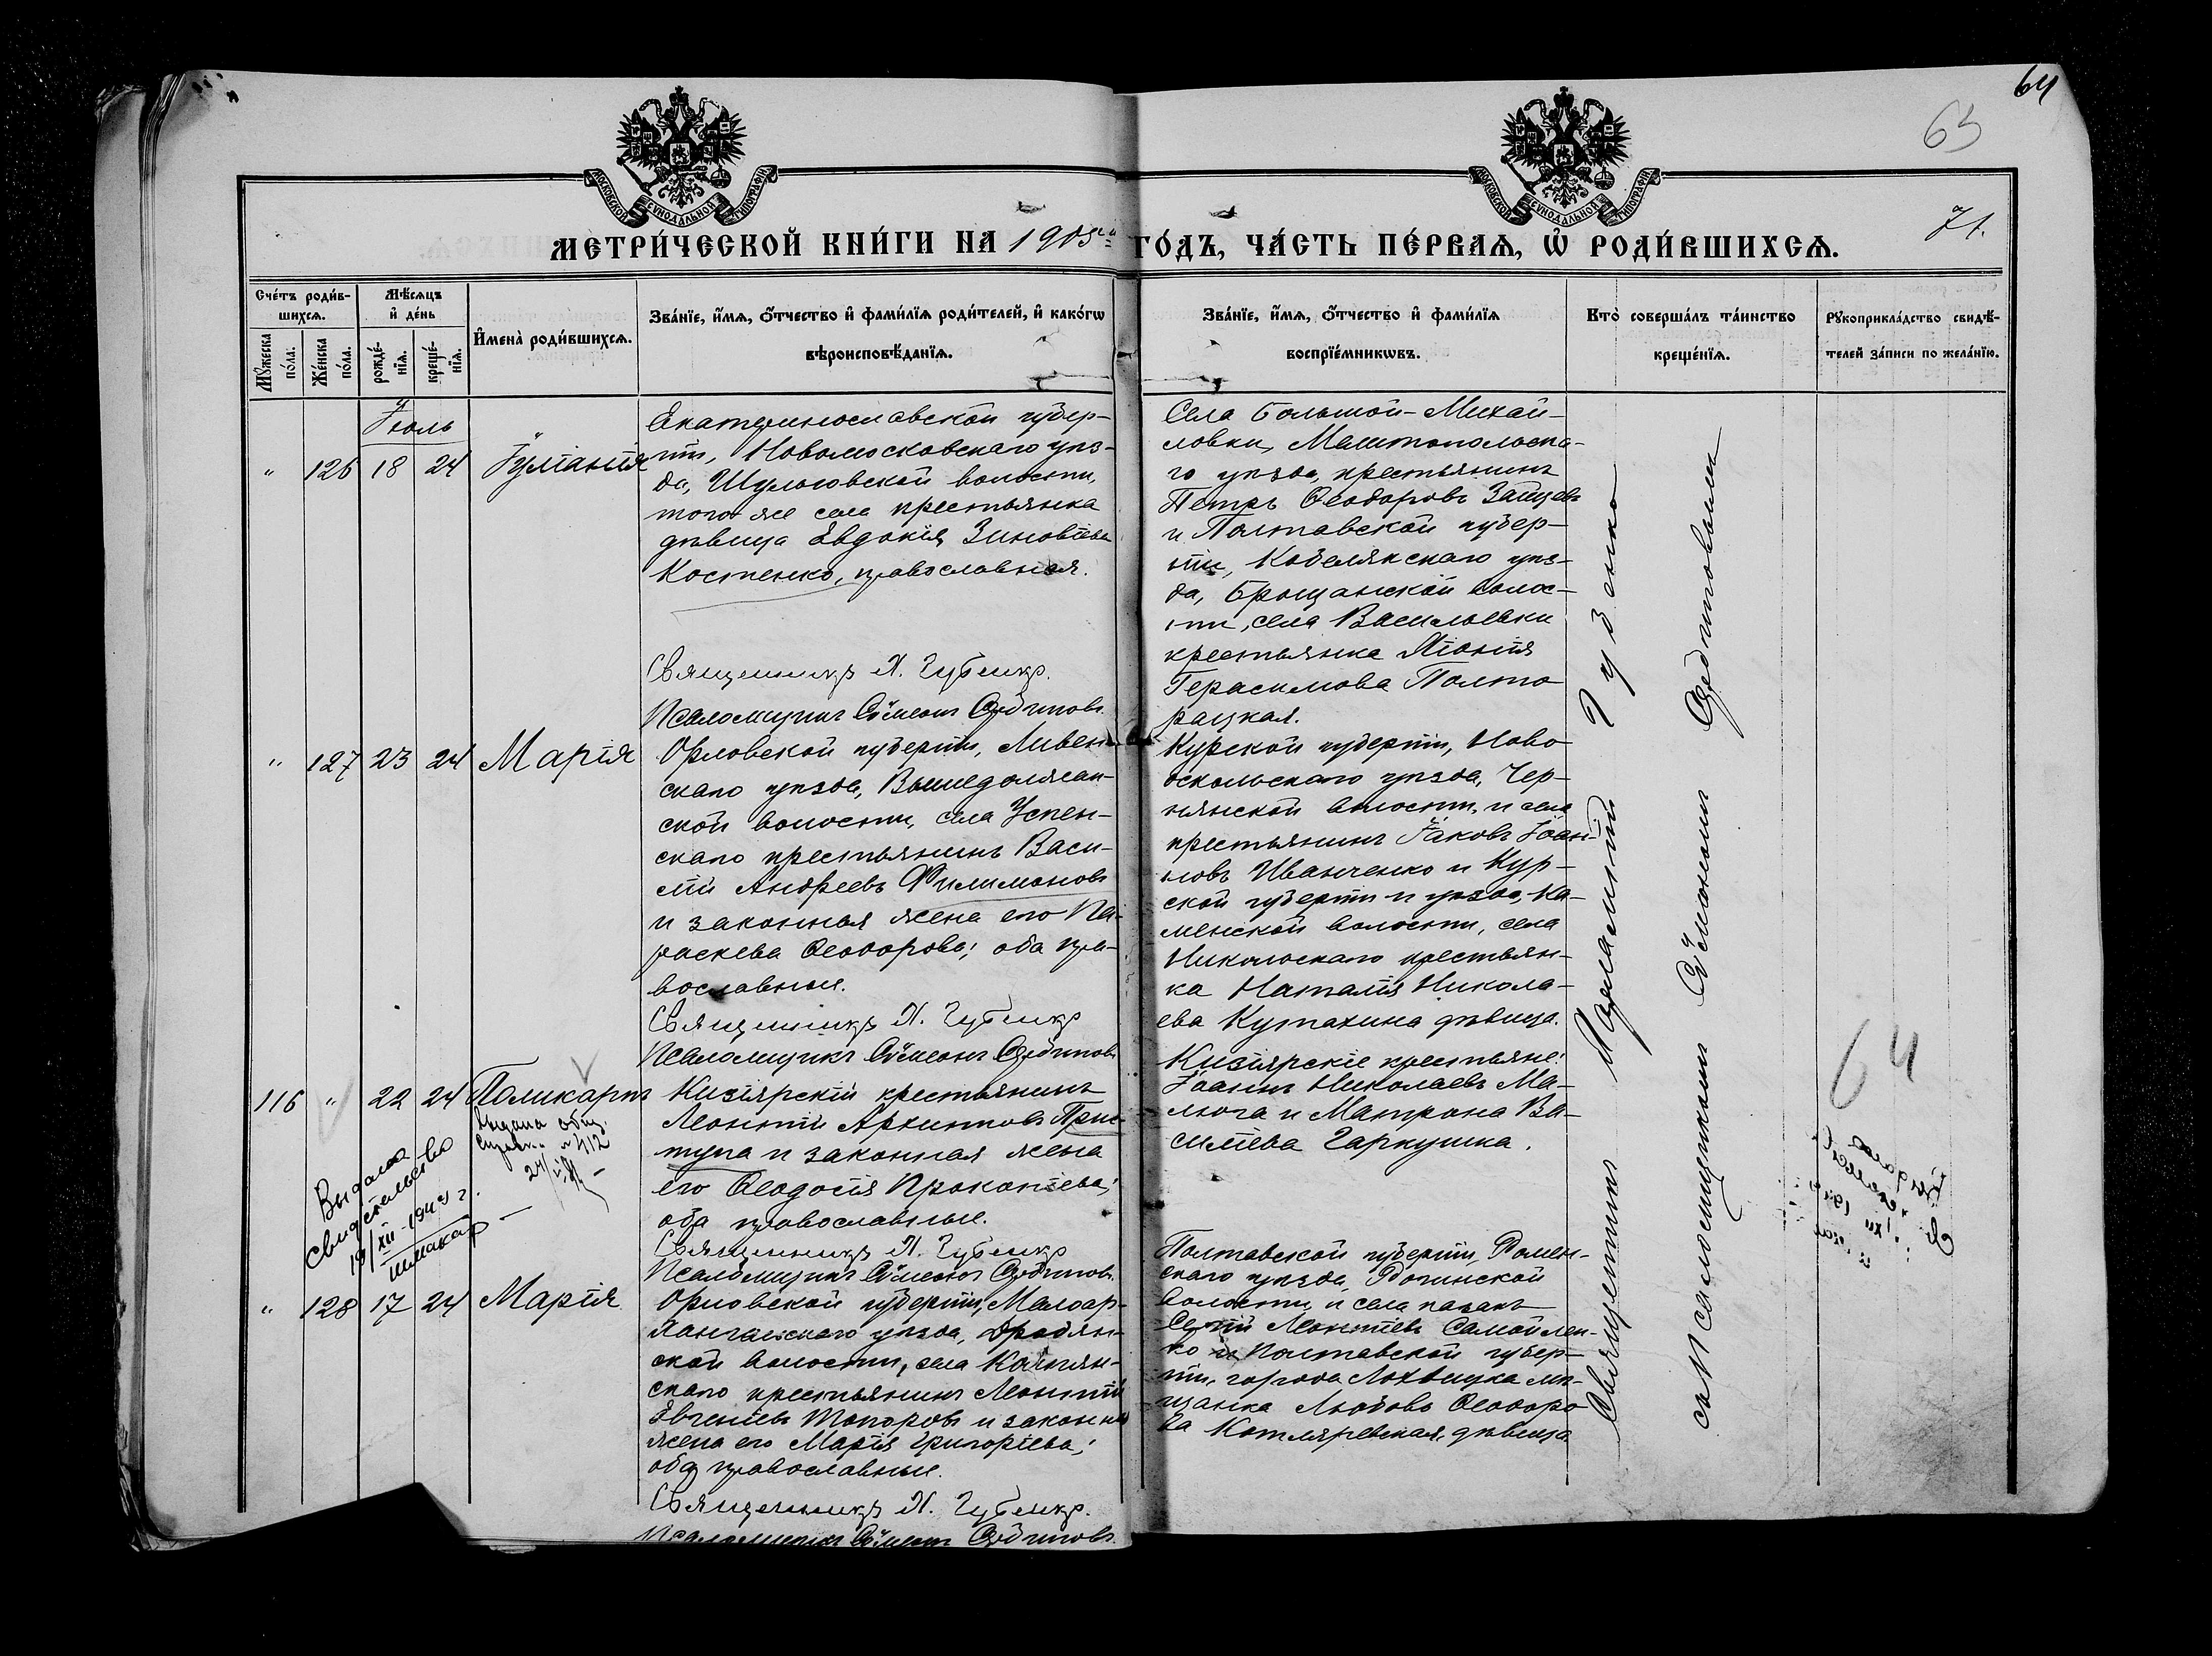 64
63
71.
МОСКОВСКОЙ СУНОДАЛЬНОЙ ТИПОГРАФІИ
МОСКОВСКОЙ СУНОДАЛЬНОЙ ТИПОГРАФІИ
МЕТРИ́ЧЕСКОЙ КНИ́ГИ НА 1905й ГО́ДЪ, ЧА́СТЬ ПЕ́РВАѦ, Ѡ҆ РОДИ́ВШИХСѦ.
Сче́тъ роди́в-
шихсѧ.
Мꙋ́жеска по́ла.
Же́нска по́ла.
Мѣ́сяцъ
и҆ де́нь
рожде́-
нїѧ.
креще́-
нїѧ.
И҆мена̀ роди́вшихсѧ.
Зва́нїе, и҆́мѧ, ѻ҆́тчество и҆ фами́лїѧ роди́телей, и҆ како́гѡ
вѣроисповѣ́данїѧ.
Зва́нїе, и҆́мѧ, ѻ҆́тчество и҆ фами́лїѧ
воспрїе́мникѡвъ.
Кто̀ соверша́лъ та́инство
креще́нїѧ.
Рꙋкоприкла́дство свидѣ́-
телей за́писи по жела́нїю.
Іюль
" 126 18 24 Іуліанія
Екатеринославской губер-
ніи, Новомосковскаго уѣз-
да, Шульговской волости,
того же села крестьянка
дѣвица Евдокія Зиновіева
Костенко, православная.
Священникъ А. Губенко.
Псаломщикъ Сѵмеонъ
Села Большой-Михай-
ловки, Мелитопольска-
го уѣзда, крестьянинъ
Петръ Ѳеодоровъ Зайцевъ
и Полтавской губер-
ніи, Кобелякскаго уѣз-
да, волос-
ти, села Васильевки
крестьянка
Герасимова Полто
рацкая.
" 127 23 24 Марія
Орловской губерніи, Ливен-
скаго уѣзда,
ской волости, села Успен-
скаго крестьянинъ Васи-
лій Андреевъ Филимоновъ
и законная жена его Па-
раскева Ѳеодорова; оба пра-
вославные.
Священникъ А. Губенко
Псаломщикъ Сѵмеонъ
Курской губерніи, Ново
оскольскаго уѣзда, Чер-
нянской волости и села
крестьянинъ Іаковъ Іоан-
новъ Иванченко и Кур-
ской губерніи и уѣзда, Ка-
менской волости, села
Никольскаго крестьян-
ка Наталія Никола-
ева дѣвица.
116 " 22 24 Поликарпъ
Кизіярскій крестьянинъ
Леонтій Архиповъ При-
тупа и законная жена
его Ѳеодосія Прокопіева;
оба православные.
Священникъ А. Губенко
Псаломщикъ Сѵмеонъ
Кизіярскіе крестьяне:
Іоаннъ Николаевъ Ма-
люга и Матрона Ва-
силіева Гаркушина.
Выдана
№ 412
Выдано
свидетельство
19/XII-1943 г.
" 128 17 24 Марія
Орловской губерніи, Малоар-
хангельскаго уѣзда,
ской волости, села
скаго крестьянинъ Леонтій
Евгеніевъ Топоровъ и законная
жена его Марія Григоріева;
оба православные.
Священникъ А. Губенко.
Псаломщикъ Сѵмеонъ
Полтавской губерніи, Ромен-
скаго уѣзда,
волости и села казакъ
Леонтіевъ Самойлен-
ко и Полтавской губер-
ніи, города Лохвицка мѣ-
щанка Любовь Ѳеодоро
ва Котляревская, дѣвица
Священникъ Губенко
съ псаломщикомъ Сѵмеономъ
64